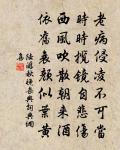 老病侵凌不可當
時時攬鏡自悲傷
西風吹散朝來酒
依舊衰顏似葉黃
陸游秋晚詞典網